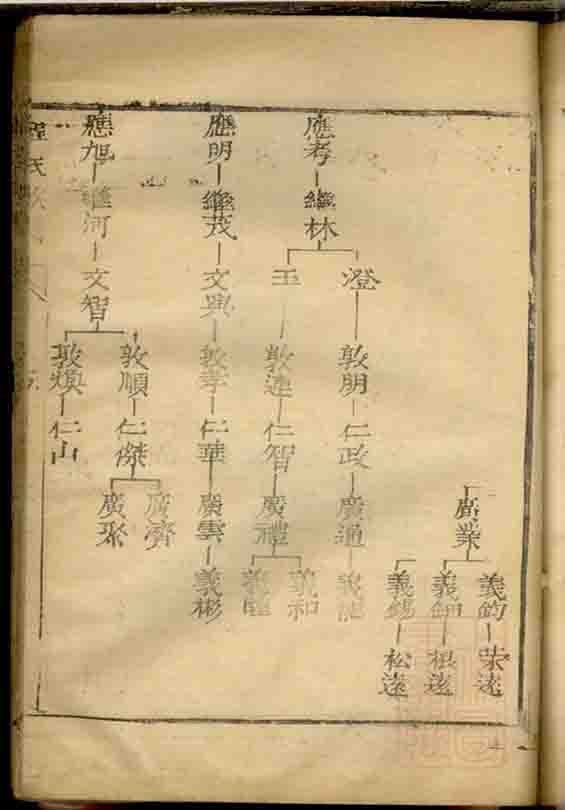 廣業
義鈞 榮遠
義鉀 根遠
義錫 松遠
應考 繼林
澄 敦朋 仁政 廣通 義龍
玉 敦連 仁智 廣禮
義和
應明 繼茂 文興 敦孝 仁華 廣雲 義彬
應旭 繼河 文智
敦順 仁傑
廣濟
廣聚
敦煥 仁山
程氏